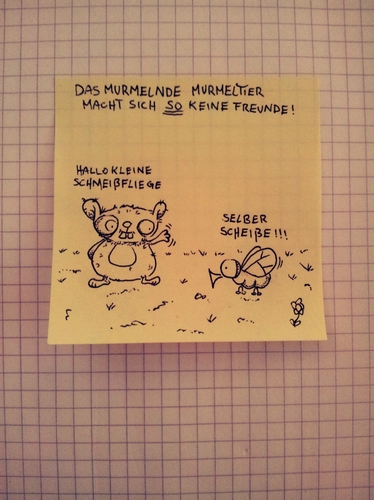 DAS MURMELNDE MURMELTIER
MACHT SICH SO KEINE FREUNDE!
HALLO KLEINE
SCHMEIßFLIEGE
SELBER
SCHEIßE!!!